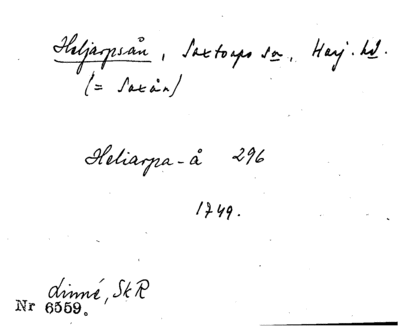 Heljarpsån, Saxtorps sn, Harj. hd.
(= Saxån)
Heliarpa-å 296
1749.
Linné, SkR
Nr 6559.